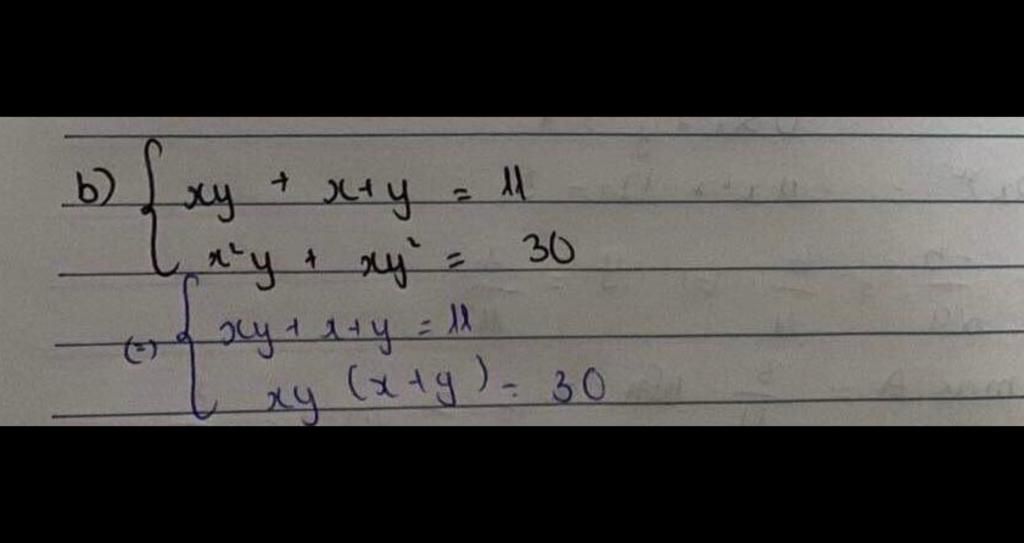 b) { xy + x+y = 11
x²y + xy² = 30
(=) { xy + x+y = 11
xy (x+y) = 30